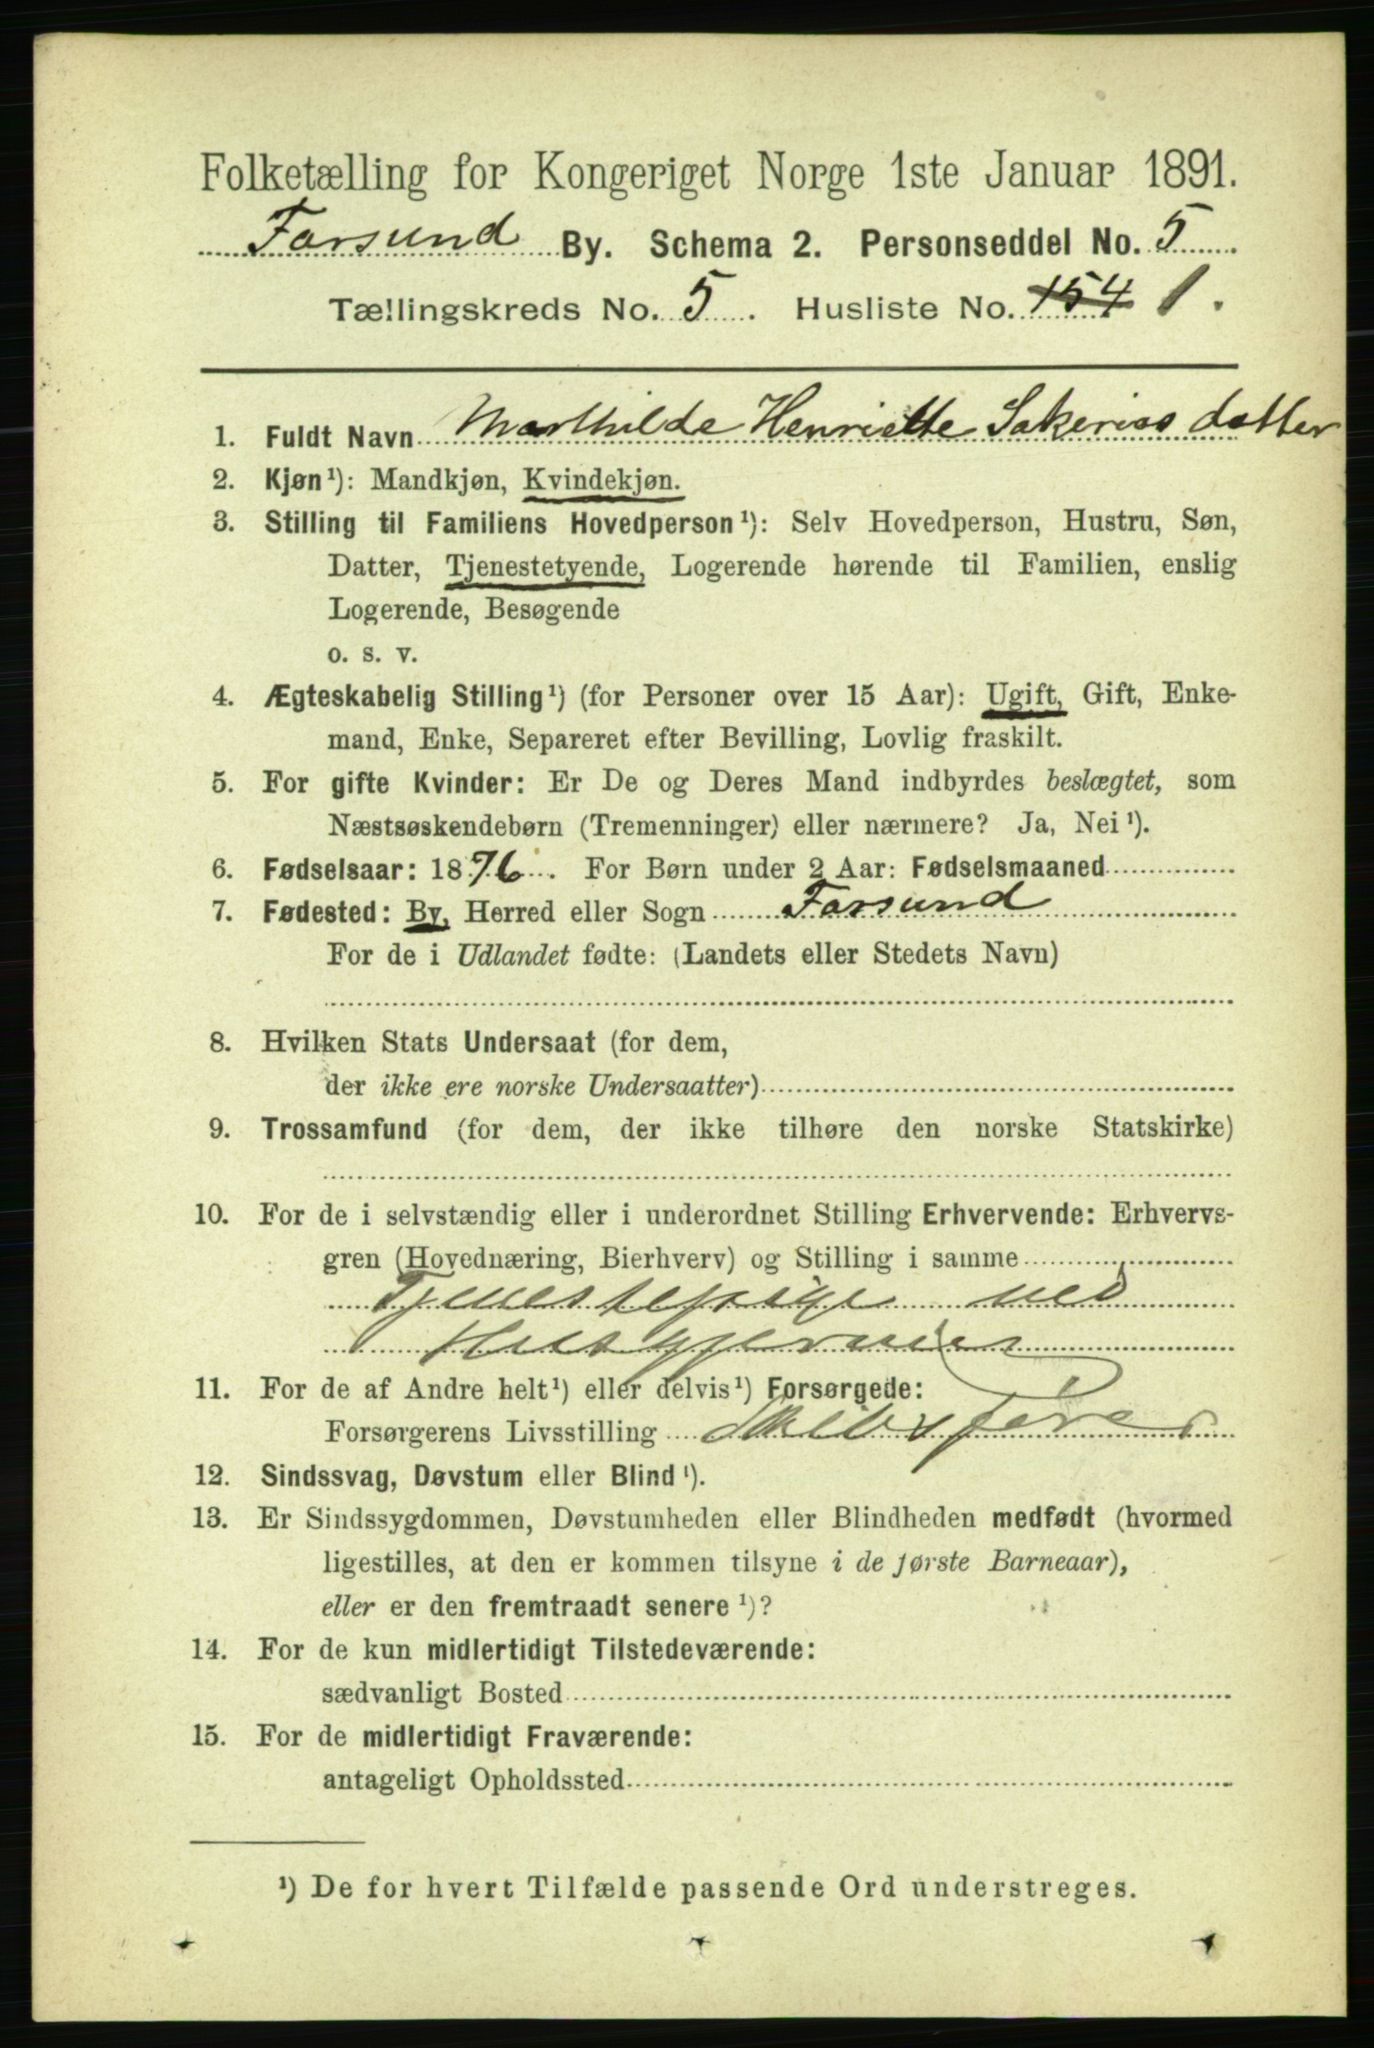 Folketælling for Kongeriget Norge 1ste Januar 1891.
Farsund By. Schema 2. Personseddel No. 5
Tællingskreds No. 5. Husliste No. 154 1.
1. Fuldt Navn Marthilde Henriette Sakerias datter
2. Kjøn¹): Mandkjøn, Kvindekjøn.
3. Stilling til Familiens Hovedperson¹): Selv Hovedperson, Hustru, Søn,
Datter, Tjenestetyende, Logerende hørende til Familien, enslig
Logerende, Besøgende
o. s. v.
4. Ægteskabelig Stilling¹) (for Personer over 15 Aar): Ugift, Gift, Enke-
mand, Enke, Separeret efter Bevilling, Lovlig fraskilt.
5. For gifte Kvinder: Er De og Deres Mand indbyrdes beslægtet, som
Næstsøskendebørn (Tremenninger) eller nærmere? Ja, Nei¹).
6. Fødselsaar: 1876. For Børn under 2 Aar: Fødselsmaaned
7. Fødested: By, Herred eller Sogn Farsund
For de i Udlandet fødte: (Landets eller Stedets Navn)
8. Hvilken Stats Undersaat (for dem,
der ikke ere norske Undersaatter)
9. Trossamfund (for dem, der ikke tilhøre den norske Statskirke)
10. For de i selvstændig eller i underordnet Stilling Erhvervende: Erhvervs-
gren (Hovednæring, Bierhverv) og Stilling i samme
Tjenestepige ved
Husgjerning
11. For de af Andre helt¹) eller delvis¹) Forsørgede:
Forsørgerens Livsstilling Skibsfører
12. Sindssvag, Døvstum eller Blind¹).
13. Er Sindssygdommen, Døvstumheden eller Blindheden medfødt (hvormed
ligestilles, at den er kommen tilsyne i de første Barneaar),
eller er den fremtraadt senere¹)?
14. For de kun midlertidigt Tilstedeværende:
sædvanligt Bosted
15. For de midlertidigt Fraværende:
antageligt Opholdssted
¹) De for hvert Tilfælde passende Ord understreges.